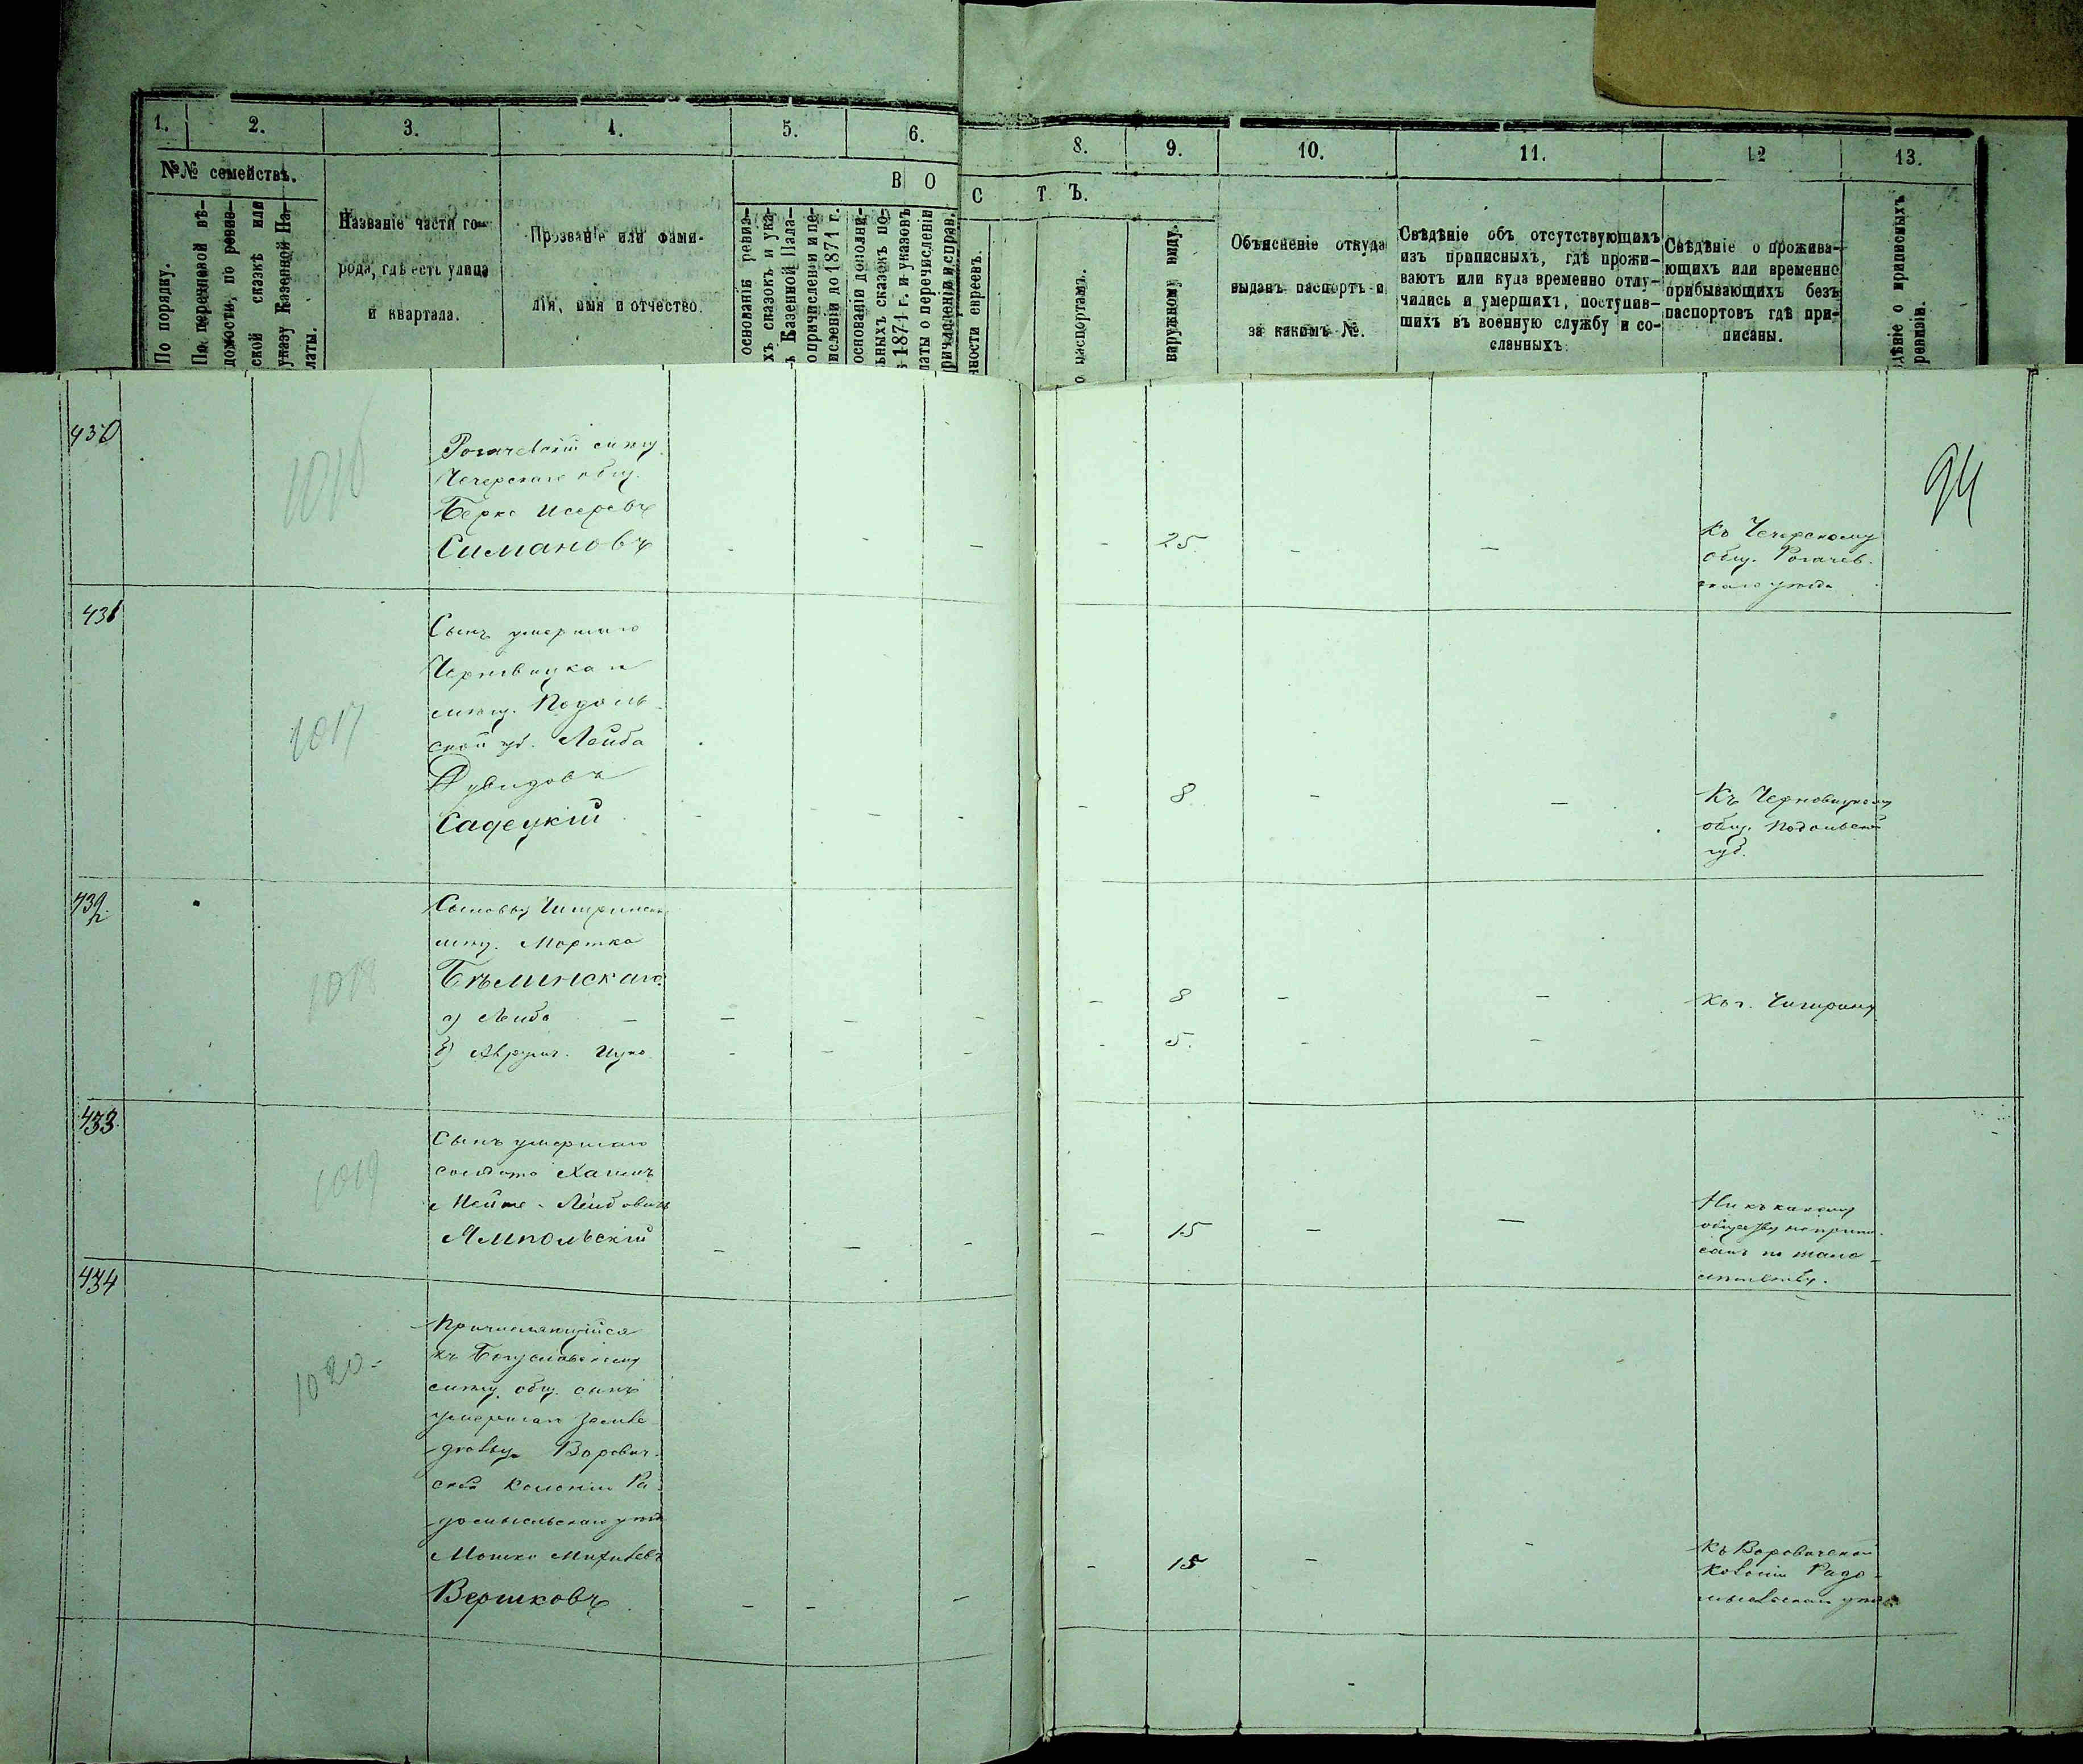 1.
2.
3.
4.
5.
6.
8.
9.
10.
11.
12
13.
№№ семействъ.
В О
С Т Ъ.
По порядку.
По перехневой вѣ-
домости, по ревиз-
ской сказкѣ или
указу Казенной Па-
латы.
Названіе части го-
рода, гдѣ есть улица
и квартала.
Прозваніе или фами-
лія, имя и отчество.
основаніѣ ревиз-
хъ сказокъ и ука-
ъ Казенной Пала-
о причисленіи и пе-
исленіи до 1871 г.
основаніи дополни-
ьныхъ сказокъ по-
ъ 1871 г. и указовъ
латы о перечисленіи
причисленіи и справ.
ности евреевъ.
о паспортамъ.
наружному виду.
Объясненіе откуда
выданъ паспортъ и
за какимъ №.
Свѣдѣніе объ отсутствующихъ
изъ приписныхъ, гдѣ прожи-
ваютъ или куда временно отлу-
чились и умершихъ, поступив-
шихъ въ военную службу и со-
сланныхъ.
Свѣдѣніе о прожива-
ющихъ или временно
прибывающихъ безъ
паспортовъ гдѣ при-
писаны.
дѣніе о приписныхъ
ревизіи.
94
430
1016
Рогачевскій мѣщ.
Чечерскаго общ.
Берко Исеровъ
Симановъ
- - - - 25. - -
Къ Чечерскому
общ. Рогачев-
скаго уѣзда
431
1017
Сынъ умершаго
Черновицкаго
мѣщ. Подоль-
ской губ. Лейба
Дувидовъ
Садецкій
- - - - 8. - -
Къ Черновицкому
общ. Подольской
губ.
432
1018
Сыновья Чигиринск.
мѣщ. Мортка
Бѣлинскаго
а) Лейба - - - - - 8 - -
Къ г. Чигирину
б) - - - - 5. - -
433
1019
Сынъ умершаго
солдата Хаимъ
Лейбовичъ
Ямпольскій
- - - - 15 - -
Ни къ какому
обществу неприпи-
санъ по мало-
лѣтству.
434
1020
Причисляющійся
къ Богуславскому
мѣщ. общ. сынъ
умершаго земле-
дѣльца Варович-
ской колоніи Ра-
домысльскаго уѣзд.
Мошко
Вершковъ
- - - - 15 - -
Къ Варовичской
колоніи Радо-
мысльскаго уѣзда